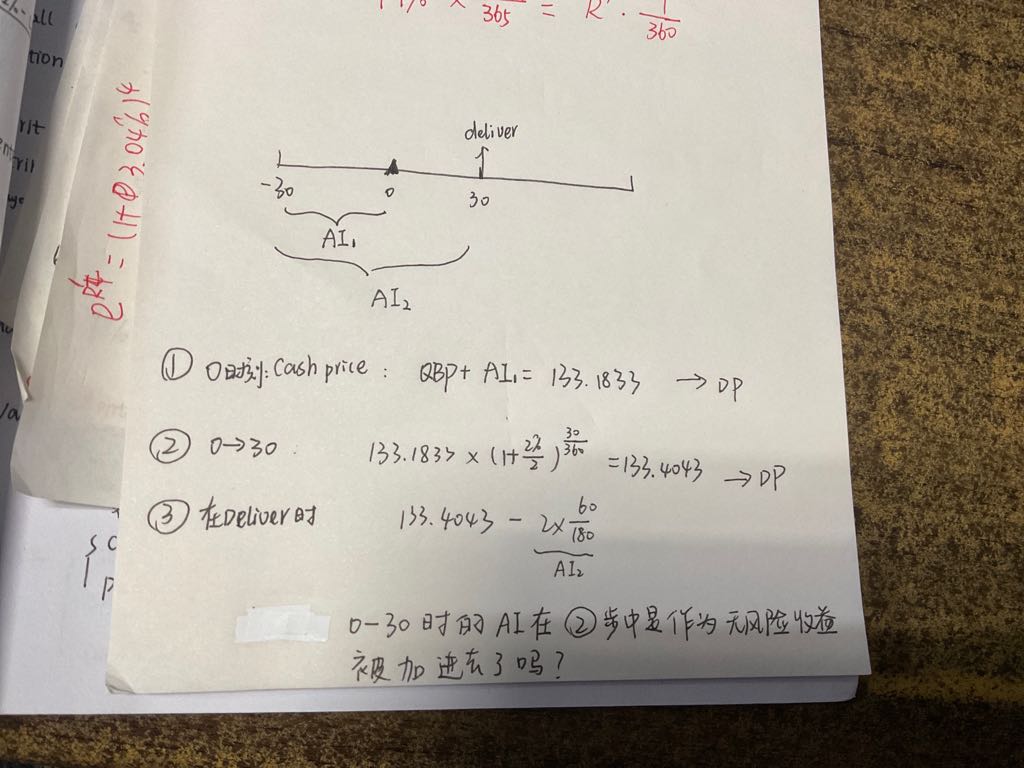 365 = R' · 1
360
all
tion
deliver
-30 0 30
AI₁
AI₂
① 0时刻: Cash price : QBP + AI₁ = 133.1833 → DP
② 0→30 : 133.1833 × (1+2%/2)^(30/360) = 133.4043 → DP
③ 在Deliver时 133.4043 - 2×60/180
AI₂
0-30时的AI在②步中是作为无风险收益
被加进去了吗?